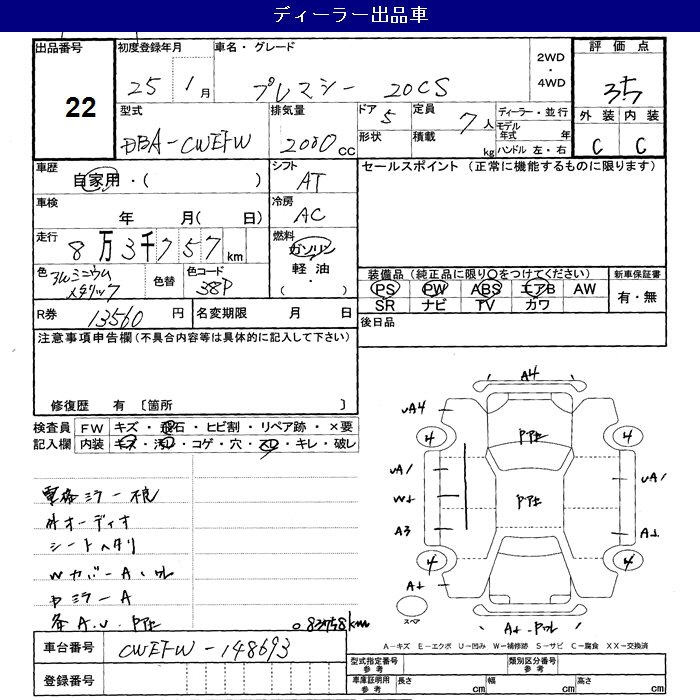 ディーラー出品車
出品番号 初度登録年月 車名・グレード 評価点
22 25年1月 プレマシー 20CS 2WD・4WD 3.5
型式 排気量 ドア 5 定員 7人 ディーラー・並行 外装 内装
DBA-CWEFW 2000cc 形状 積載 kg モデル年式 年 C C
ハンドル 左・右
車歴 自家用・( ) シフト AT セールスポイント (正常に機能するものに限ります)
車検 年 月( 日) 冷房 AC
走行 8万3千757km 燃料 ガソリン
軽油
( ・ )
色 アルミニウムメタリック 色替 色コード 38P
装備品 (純正品に限り○をつけてください) 新車保証書
PS PW ABS エアB AW 有・無
SR ナビ TV カワ
R券 13560円 名変期限 月 日 後日品
注意事項申告欄 (不具合内容等は具体的に記入して下さい)
修復歴 有 〔箇所 〕
検査員 FW キズ・飛石・ヒビ割・リペア跡・×要
記入欄 内装 キズ・汚れ・コゲ・穴・スレ・キレ・破レ
シートヘタリ
外オーディオ
A4
A4 4 4
A/ A/
W
A3
4 4
スペア
83758km
A-キズ E-エクボ U-凹み W-補修跡 S-サビ C-腐食 XX-交換済
車台番号 CWEFW-148693
登録番号
型式指定番号 参考 類別区分番号 参考
車庫証明用 参考 長さ cm 幅 cm 高さ cm